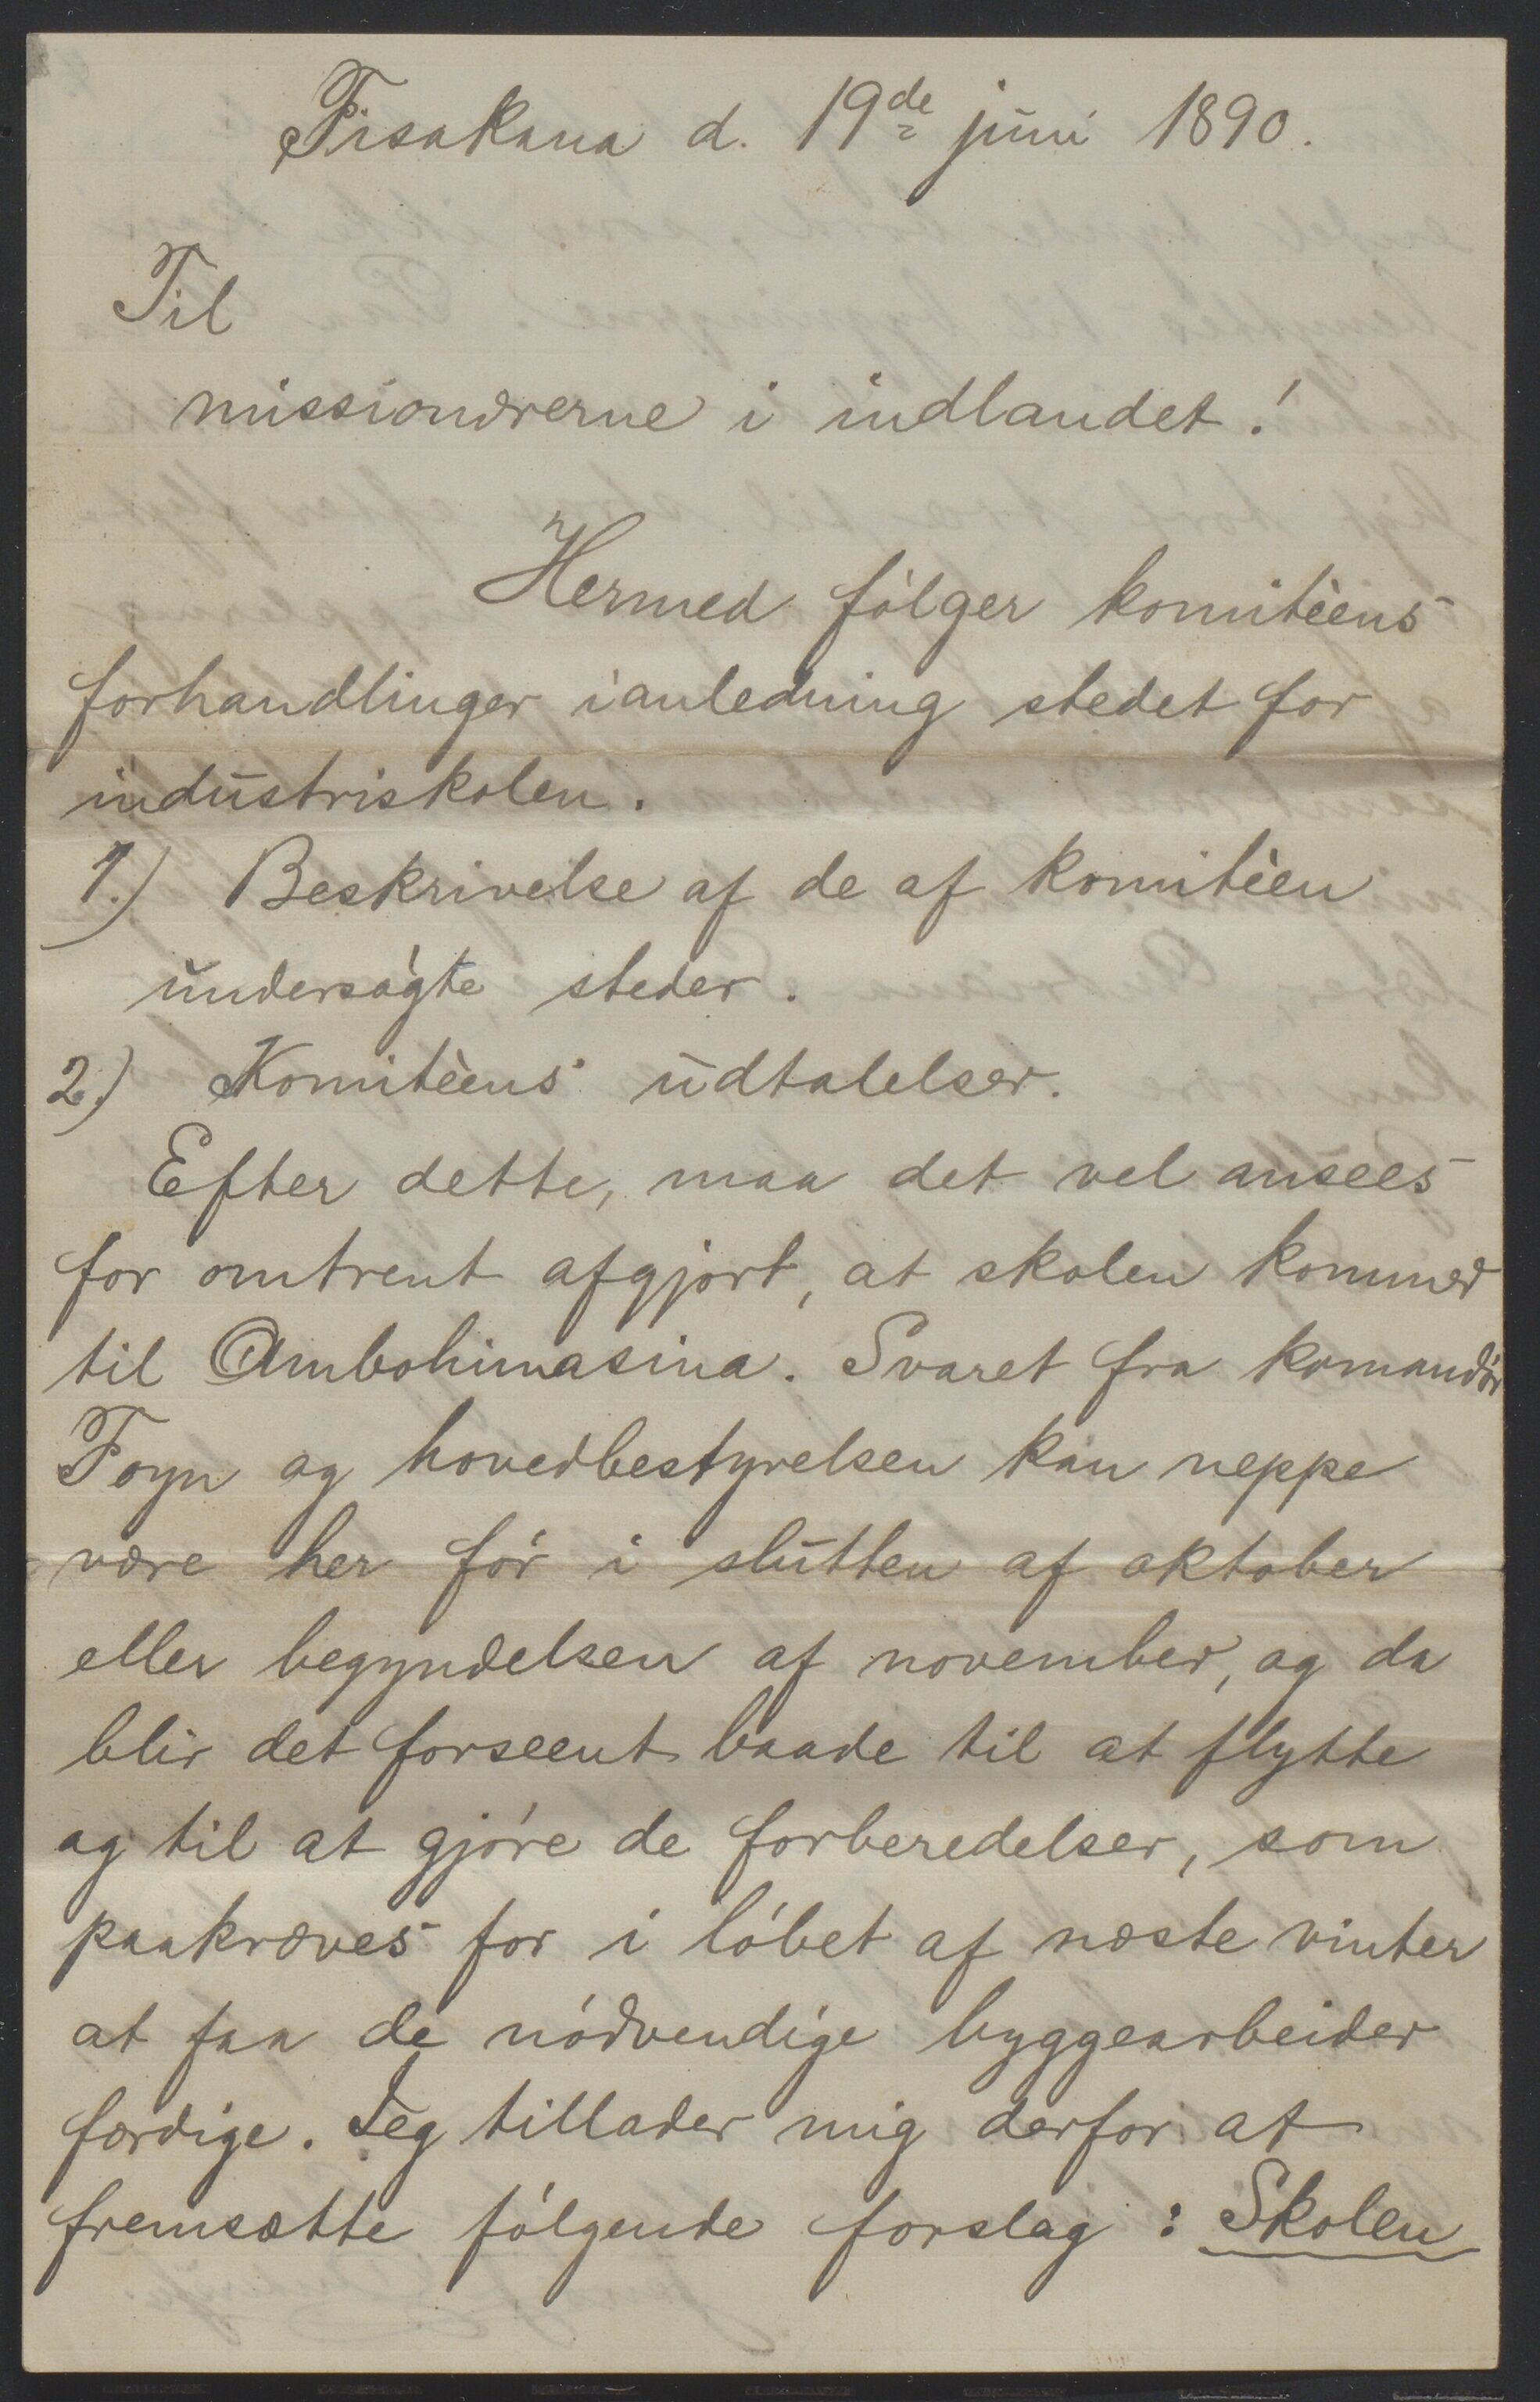 Fisakana d. 19de juni 1890.
Til
missionærerne i indlandet!
Hermed følger komitèens
forhandlinger ianledning stedet for
industriskolen.
1.) Beskrivelse af de af komitèen
undersøgte steder.
2.) Komitèens udtalelser.
Efter dette, maa det vel ansees
for omtrent afgjort, at skolen kommer
til Ambohimasina. Svaret fra komandør
Foyn og hovedbestyrelsen kan neppe
være her før i slutten af oktober
eller begyndelsen af november, og da
blir det forseent baade til at flytte
og til at gjøre de forberedelser, som
paakræves for i løbet af næste vinter
at faa de nødvendige byggearbeider
færdige. Jeg tillader mig derfor at
fremsætte følgende forslag: Skolen